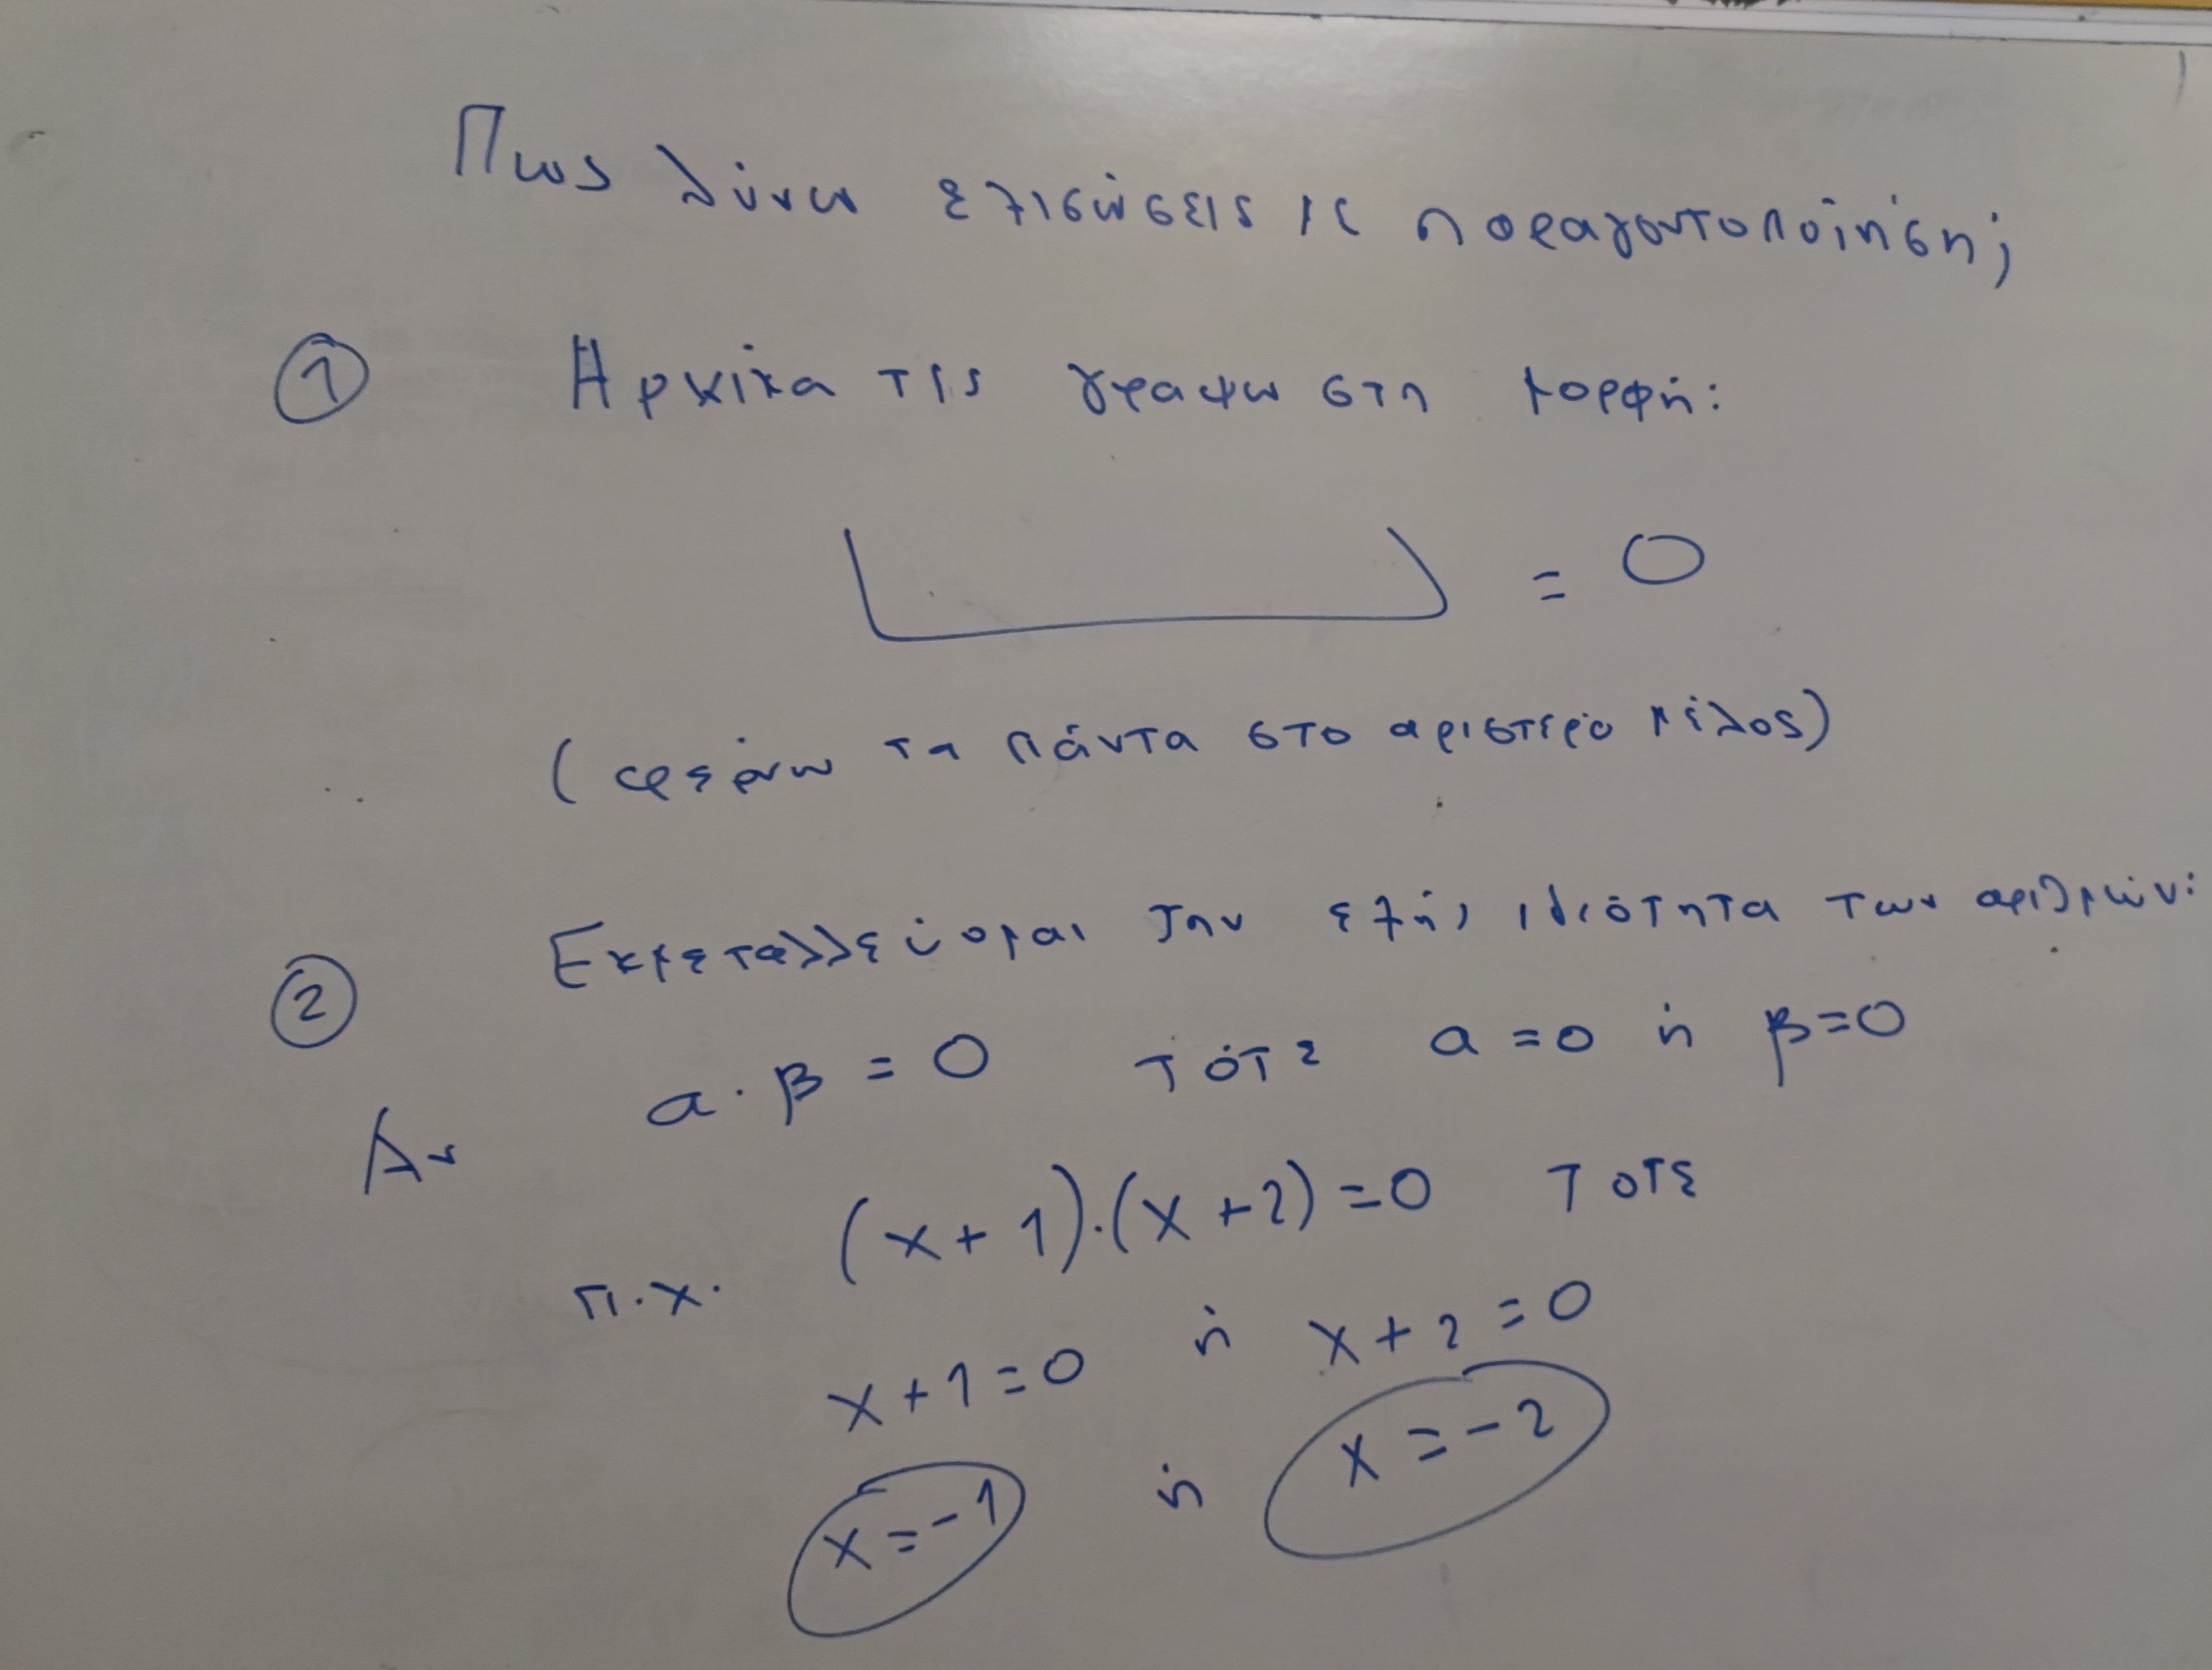 Πως λύνω εξισώσεις με παραγοντοποίηση;
① Αρχικά τις γραφω στη μορφή:
= 0
(φέρνω τα πάντα στο αριστερό μέλος)
② Εκμεταλλεύομαι την εξής ιδιότητα των αριθμών:
Αν α · β = 0 τότε α = 0 ή β = 0
π.χ. (x + 1) · (x + 2) = 0 τοτε
x + 1 = 0 ή x + 2 = 0
x = -1 ή x = -2